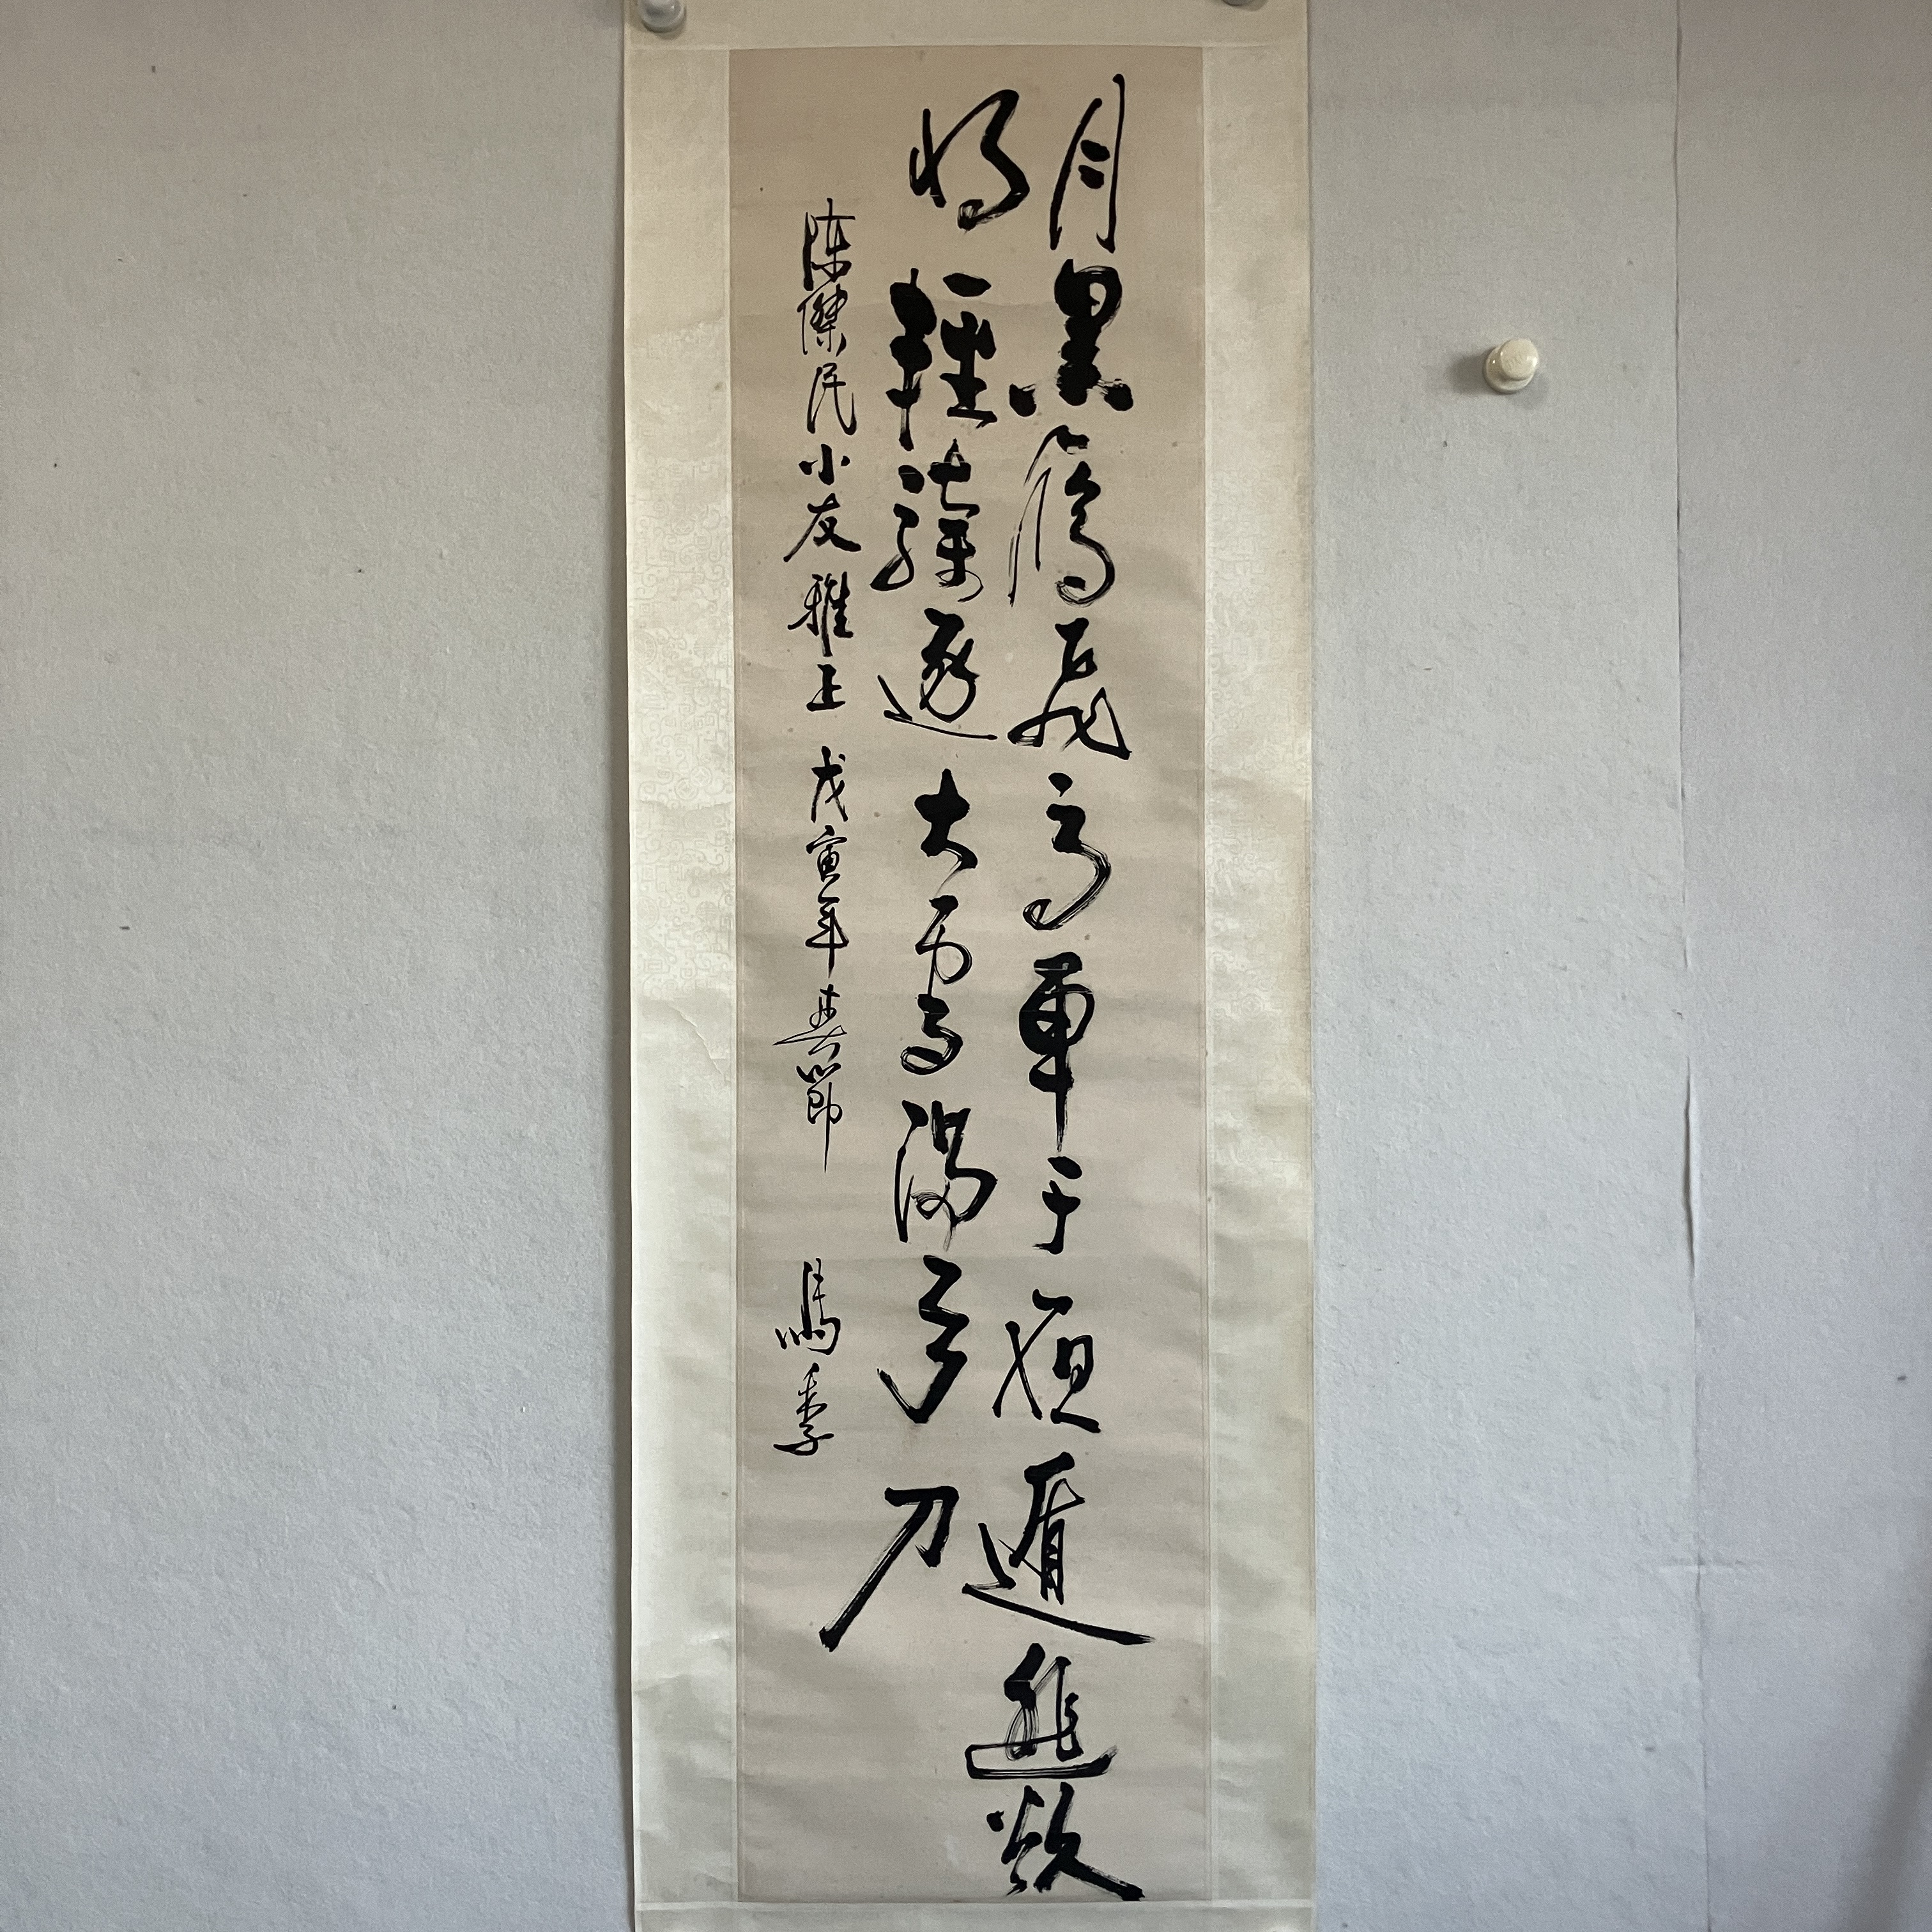 月黑鴈飛高單于夜遁逃欲
將輕騎逐大雪滿弓刀
陳傑民小友雅正 戊寅年春節 馬季